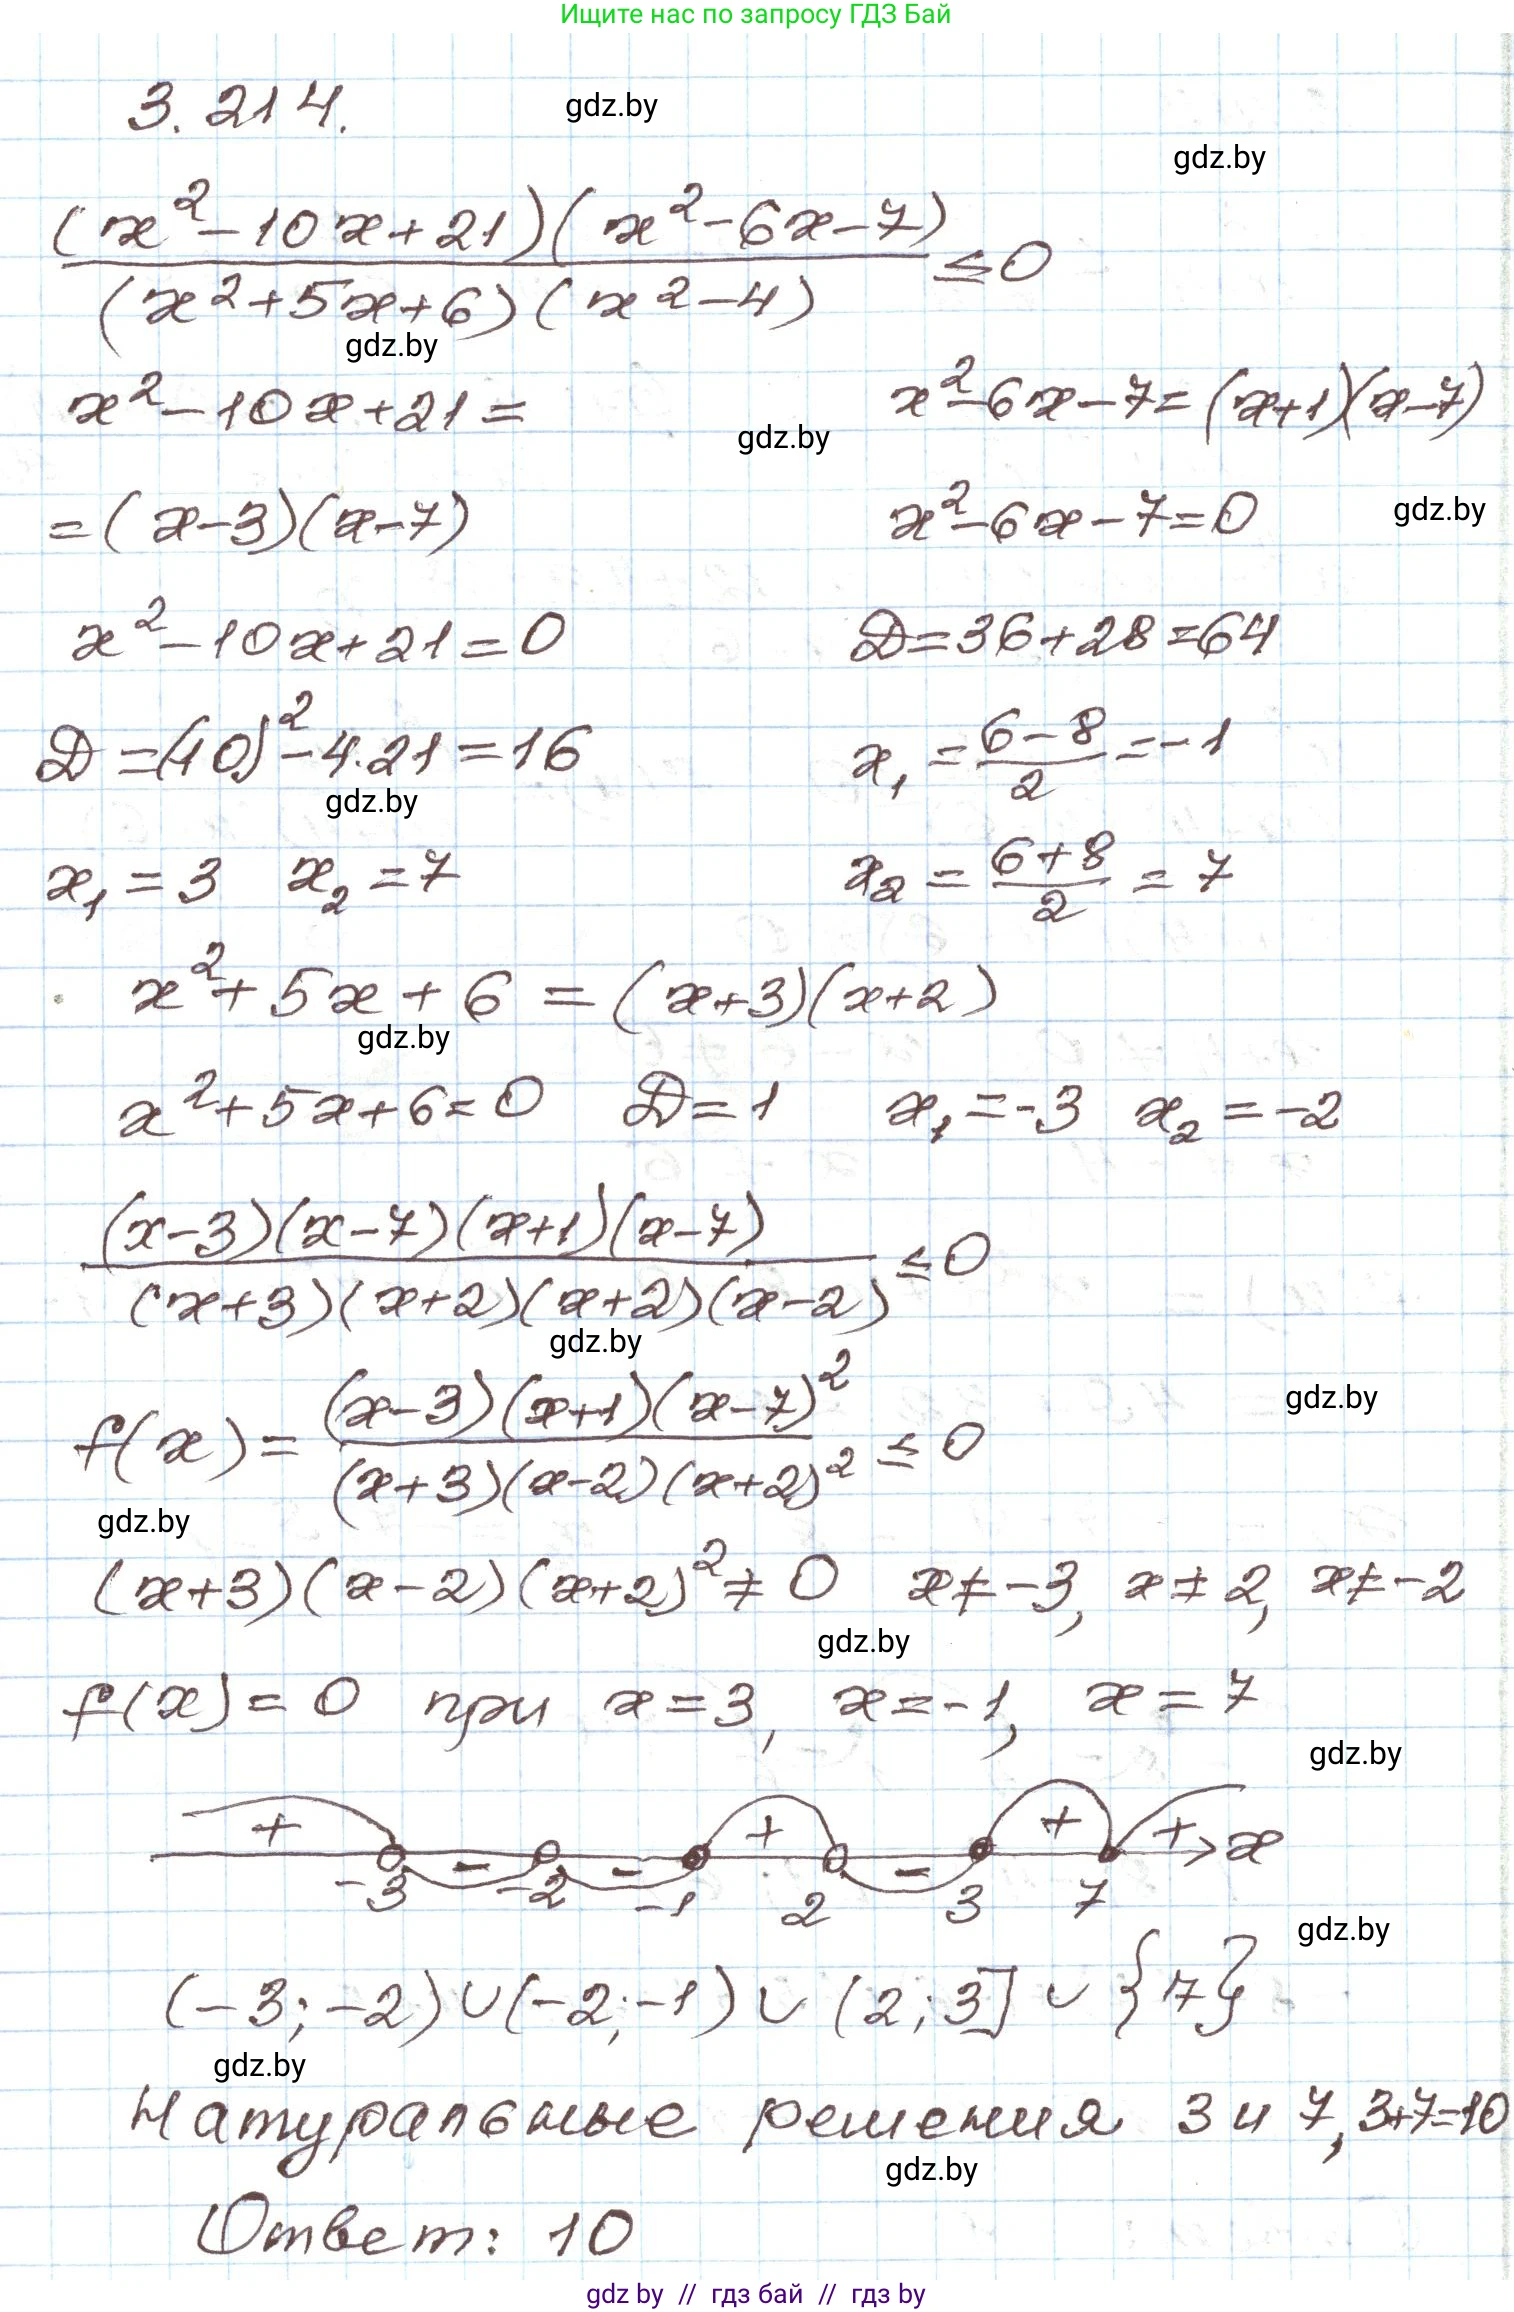 Ищите нас по запросу ГДЗ Бай
3.214.
gdz.by
gdz.by
(x²-10x+21)(x²-6x-7)
/(x²+5x+6)(x²-4) ≤0
gdz.by
x²-10x+21=
x²-6x-7=(x+1)(x-7)
gdz.by
=(x-3)(x-7)
x²-6x-7=0
gdz.by
x²-10x+21=0
D=36+28=64
D=(10)²-4.21=16
x₁=(6-8)/2=-1
gdz.by
x₁=3 x₂=7
x₂=(6+8)/2=7
x²+5x+6=(x+3)(x+2)
gdz.by
x²+5x+6=0 D=1 x₁=-3 x₂=-2
(x-3)(x-7)(x+1)(x-7)
/(x+3)(x+2)(x+2)(x-2) ≤0
gdz.by
f(x)=(x-3)(x+1)(x-7)²
/(x+3)(x-2)(x+2)² ≤0
gdz.by
gdz.by
(x+3)(x-2)(x+2)²≠0 x≠-3, x≠2, x≠-2
gdz.by
f(x)=0 при x=3, x=-1, x=7
gdz.by
+ - - + - + + x
-3 -2 -1 2 3 7
gdz.by
(-3;-2)∪(-2;-1)∪(2;3]∪{7}
gdz.by
Натуральные решения 3 и 7, 3+7=10
gdz.by
Ответ: 10
gdz by // гдз бай // гдз by